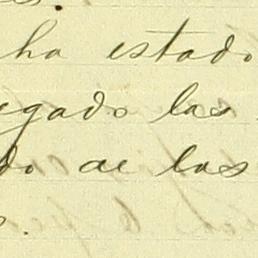 ha estado
egado las
do de las
s.